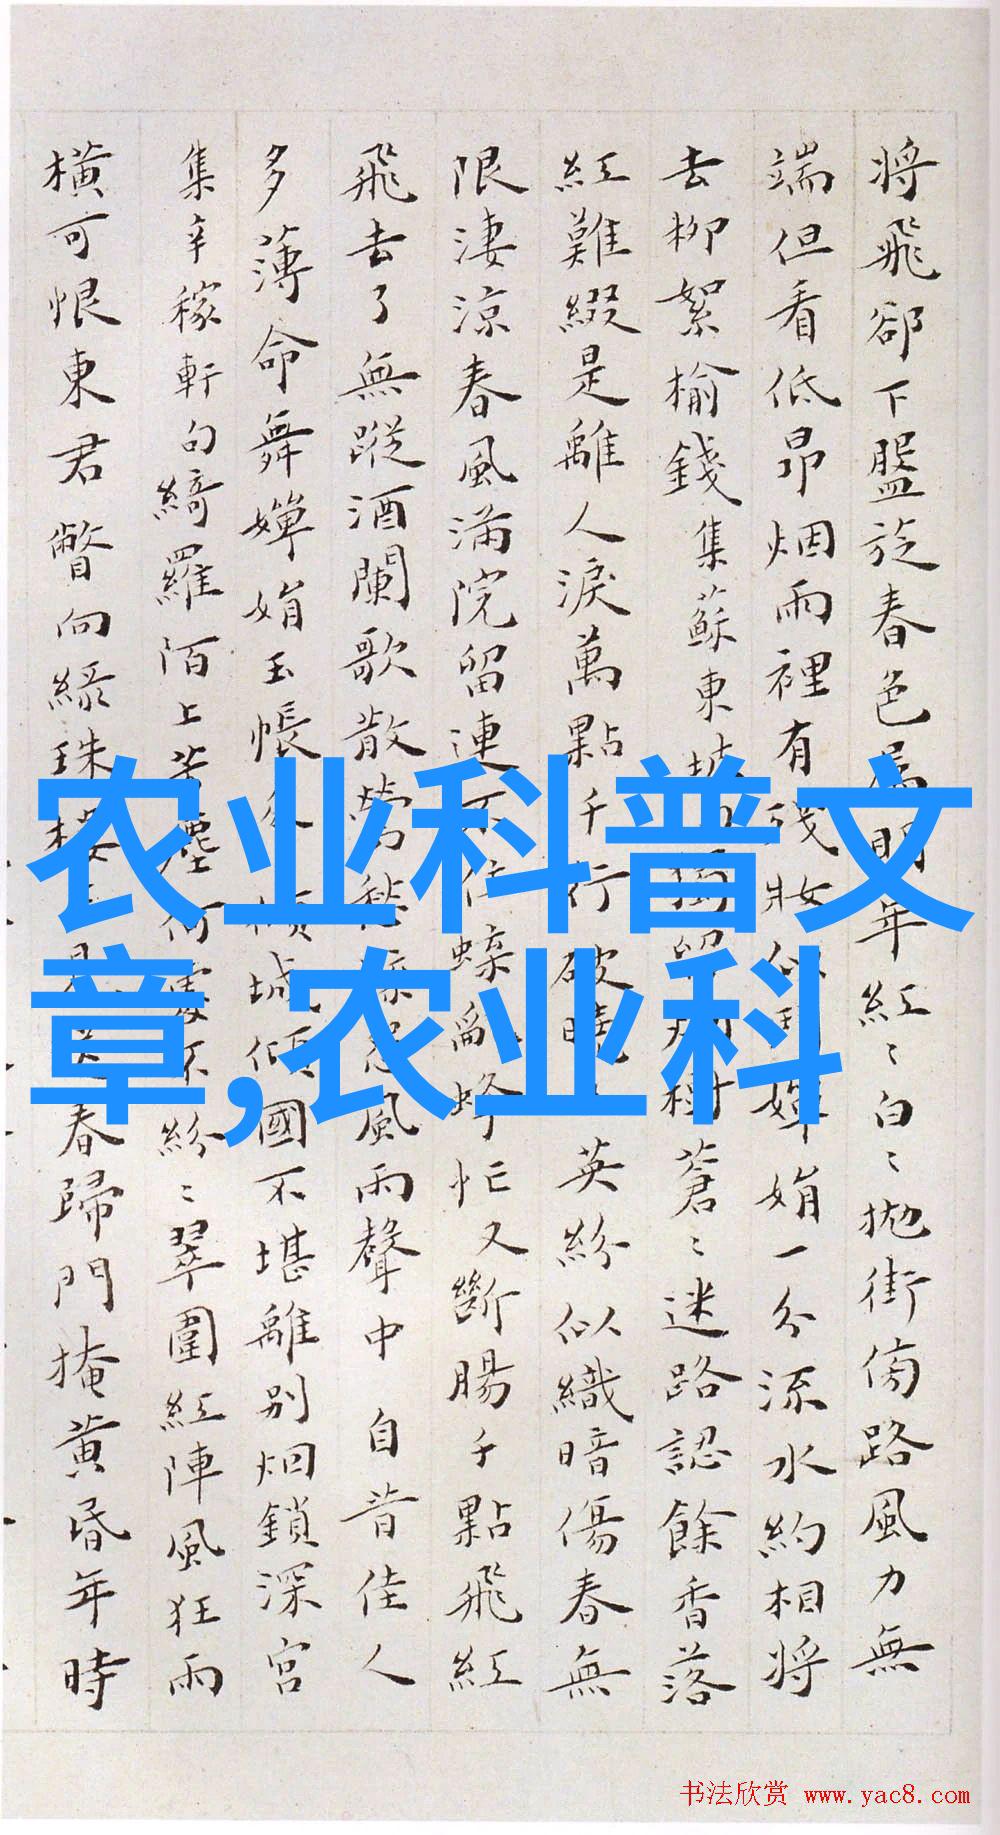 将飛卻下盤旋春色屬明年紅〻白〻拋街傍路風力無
端但看低昂烟雨裡有殘妝似嬋娟一分流水約相將
去柳絮榆錢集蘇東坡樹蒼〻迷路認餘香落
紅難綴是離人淚萬點千行破曉英紛似織暗傷春無
限淒涼春風滿院留連不住蝶為蜂忙又斷腸千點飛紅
飛去了無蹤酒闌歌散鶯愁風雨聲中自昔佳人
多薄命舞嬋娟玉帳傾城傾國不堪離別烟鎖深宮
集辛稼軒句綺羅陌上黃塵何處不紛〻翠圍紅陣風狂雨
橫可恨東君瞥向綠珠樓春歸門掩黃昏年時
农业科普文
章,农业科
书法欣赏 www.yac8.com